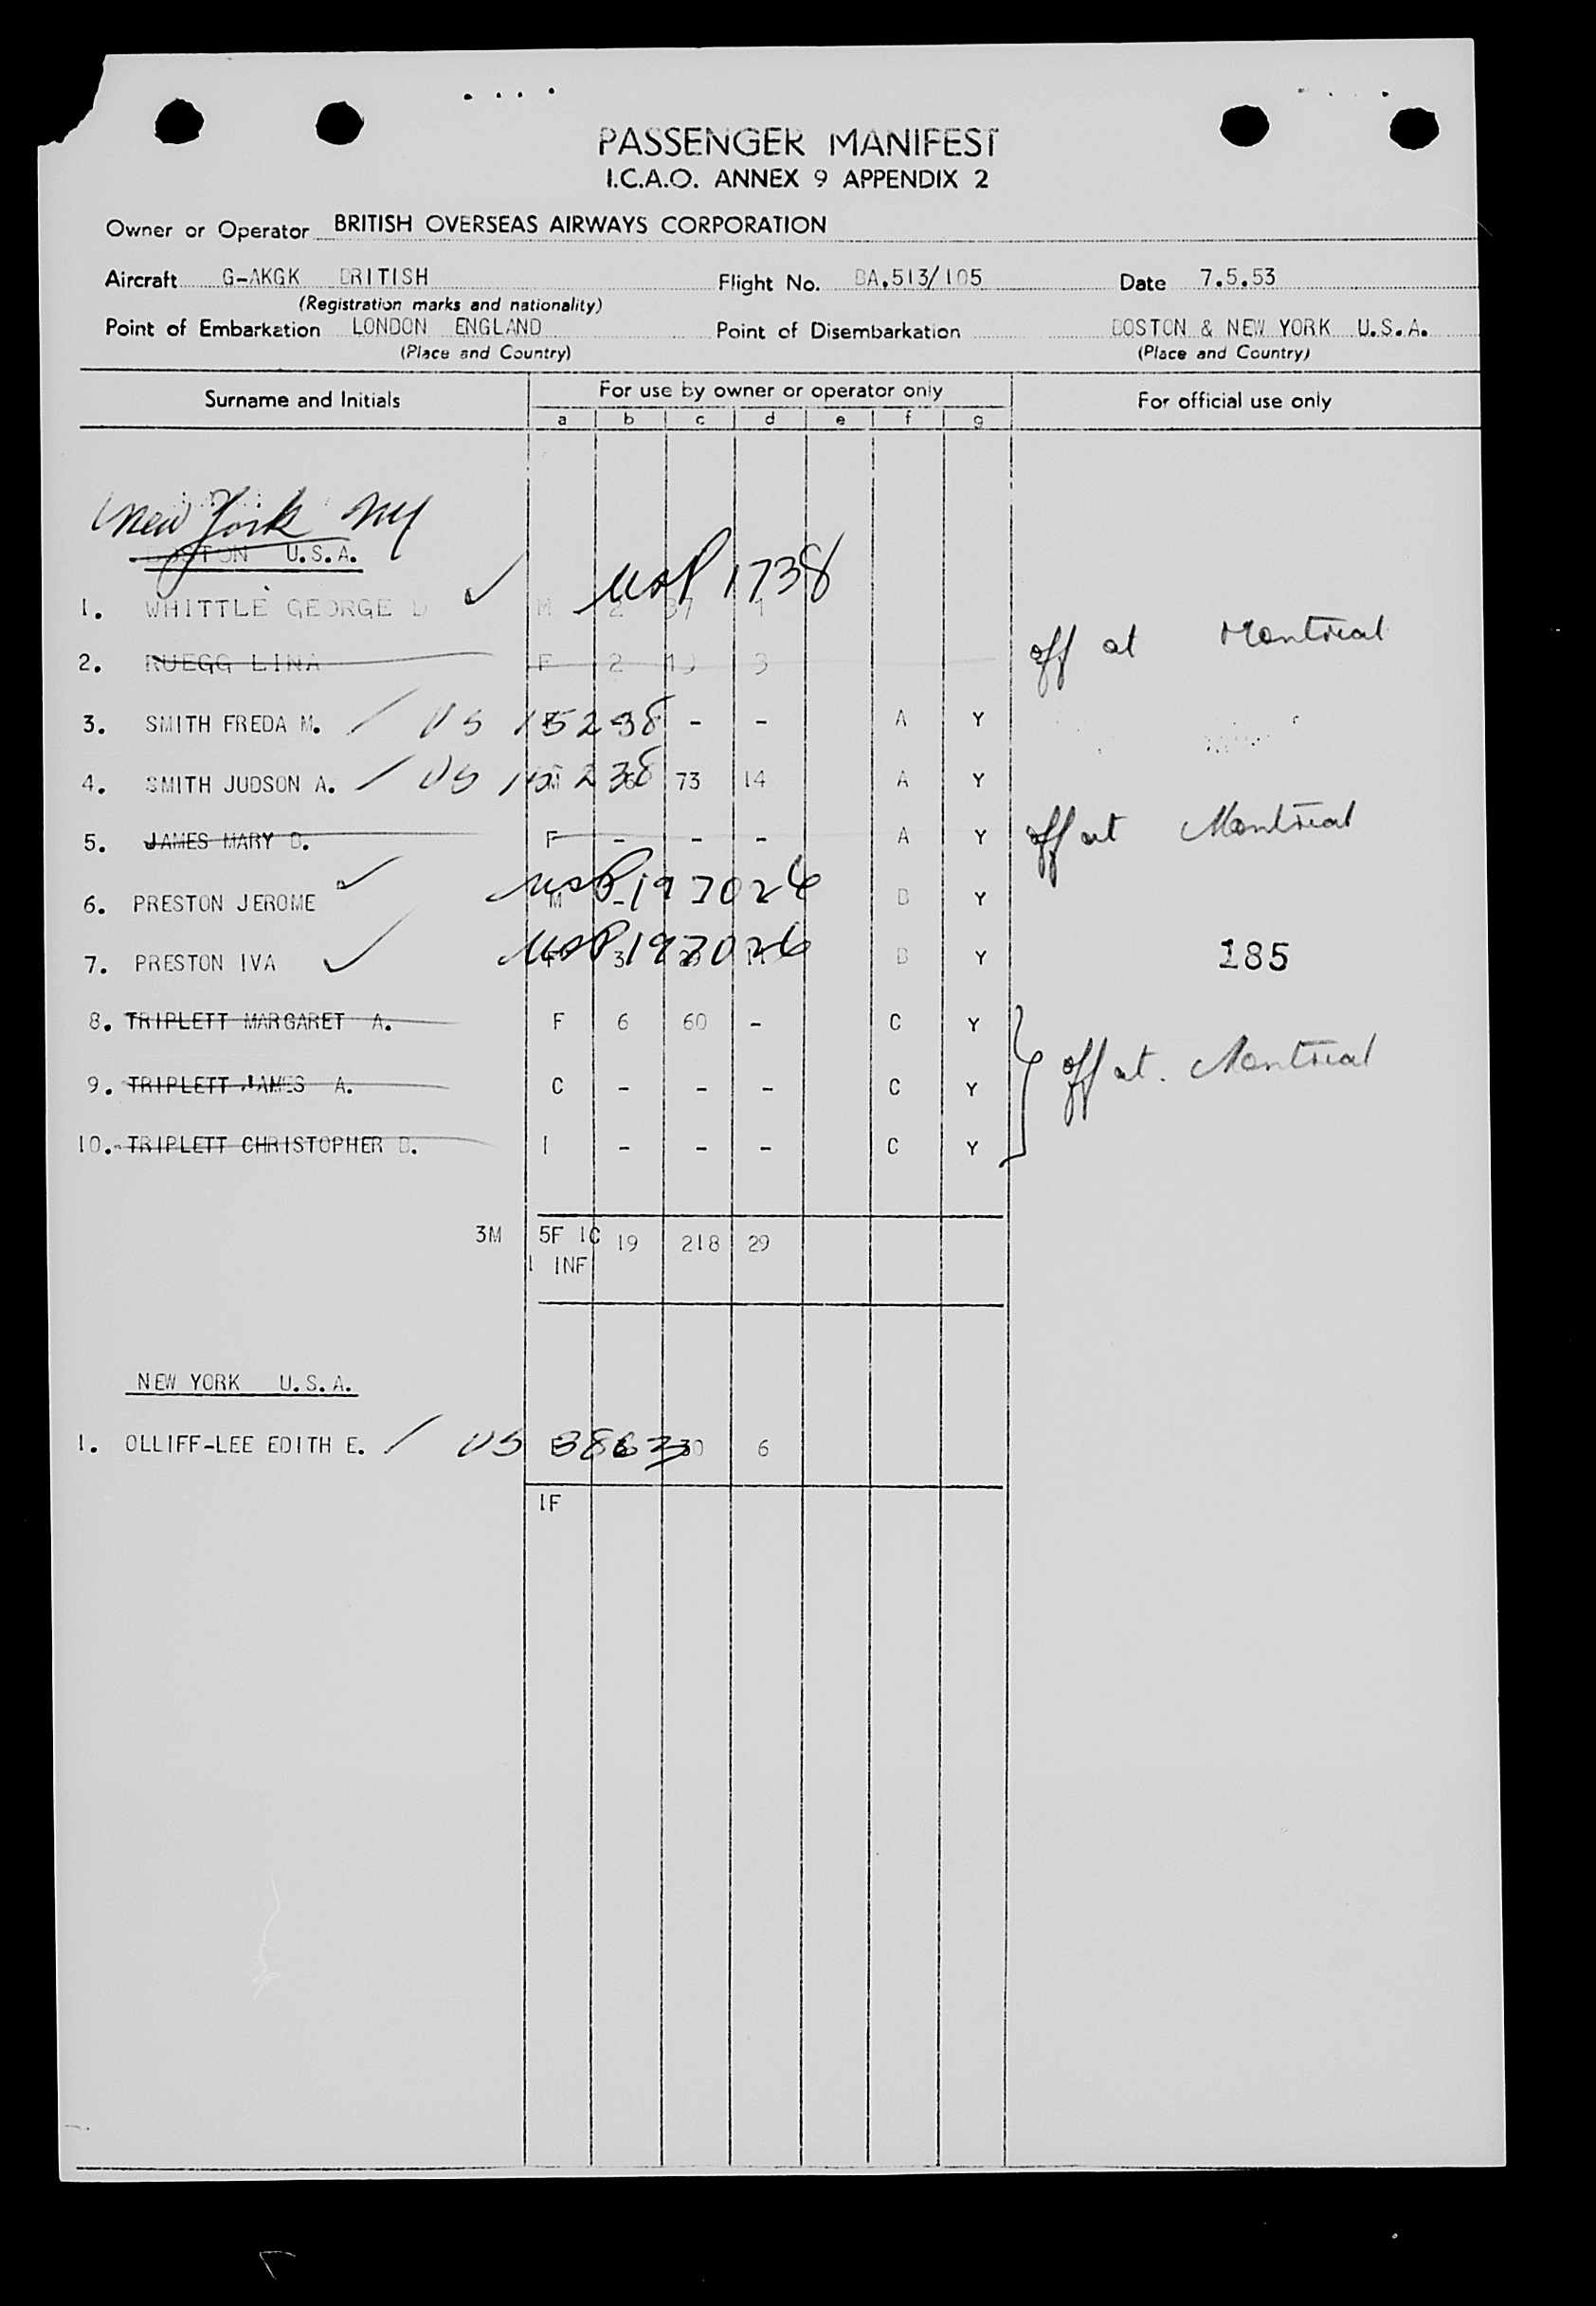 PASSENGER MANIFEST
I.C.A.O. ANNEX 9 APPENDIX 2
Owner or Operator BRITISH OVERSEAS AIRWAYS CORPORATION
Aircraft G-AKGK BRITISH Flight No. BA.513/105 Date 7.5.53
(Registration marks and nationality)
Point of Embarkation LONDON ENGLAND Point of Disembarkation BOSTON & NEW YORK U.S.A.
(Place and Country) (Place and Country)
Surname and Initials For use by owner or operator only For official use only
a b c d e f g
New York NY
BOSTON U.S.A.
USP 1738
1. WHITTLE GEORGE D M 2 37 1
off at Montreal
2. RUEGG LINA F 2 3
3. SMITH FREDA M. / US 15238 - - A Y
4. SMITH JUDSON A. / US 15238 M 6 73 14 A Y
5. JAMES MARY B. F - - - A Y off at Montreal
6. PRESTON JEROME USP 197026 M - B Y
7. PRESTON IVA USP 197026 F 3 B Y 185
8. TRIPLETT MARGARET A. F 6 60 - C Y
off at. Montreal
9. TRIPLETT JAMES A. C - - - C Y
10. TRIPLETT CHRISTOPHER B. I - - - C Y
3M 5F 1C 19 218 29
1 INF
NEW YORK U.S.A.
1. OLLIFF-LEE EDITH E. / US 38633 6
1F